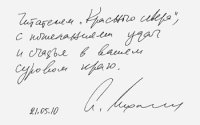 Читателям „Красного севера",
с пожеланиями удач
и счастья в вашем
суровом краю.
21.05.10